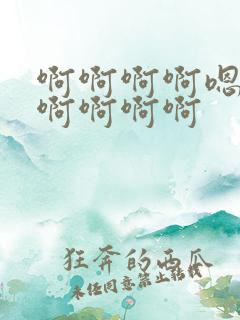 啊啊啊啊嗯
啊啊啊啊
狂奔的西瓜
未经同意禁止转载